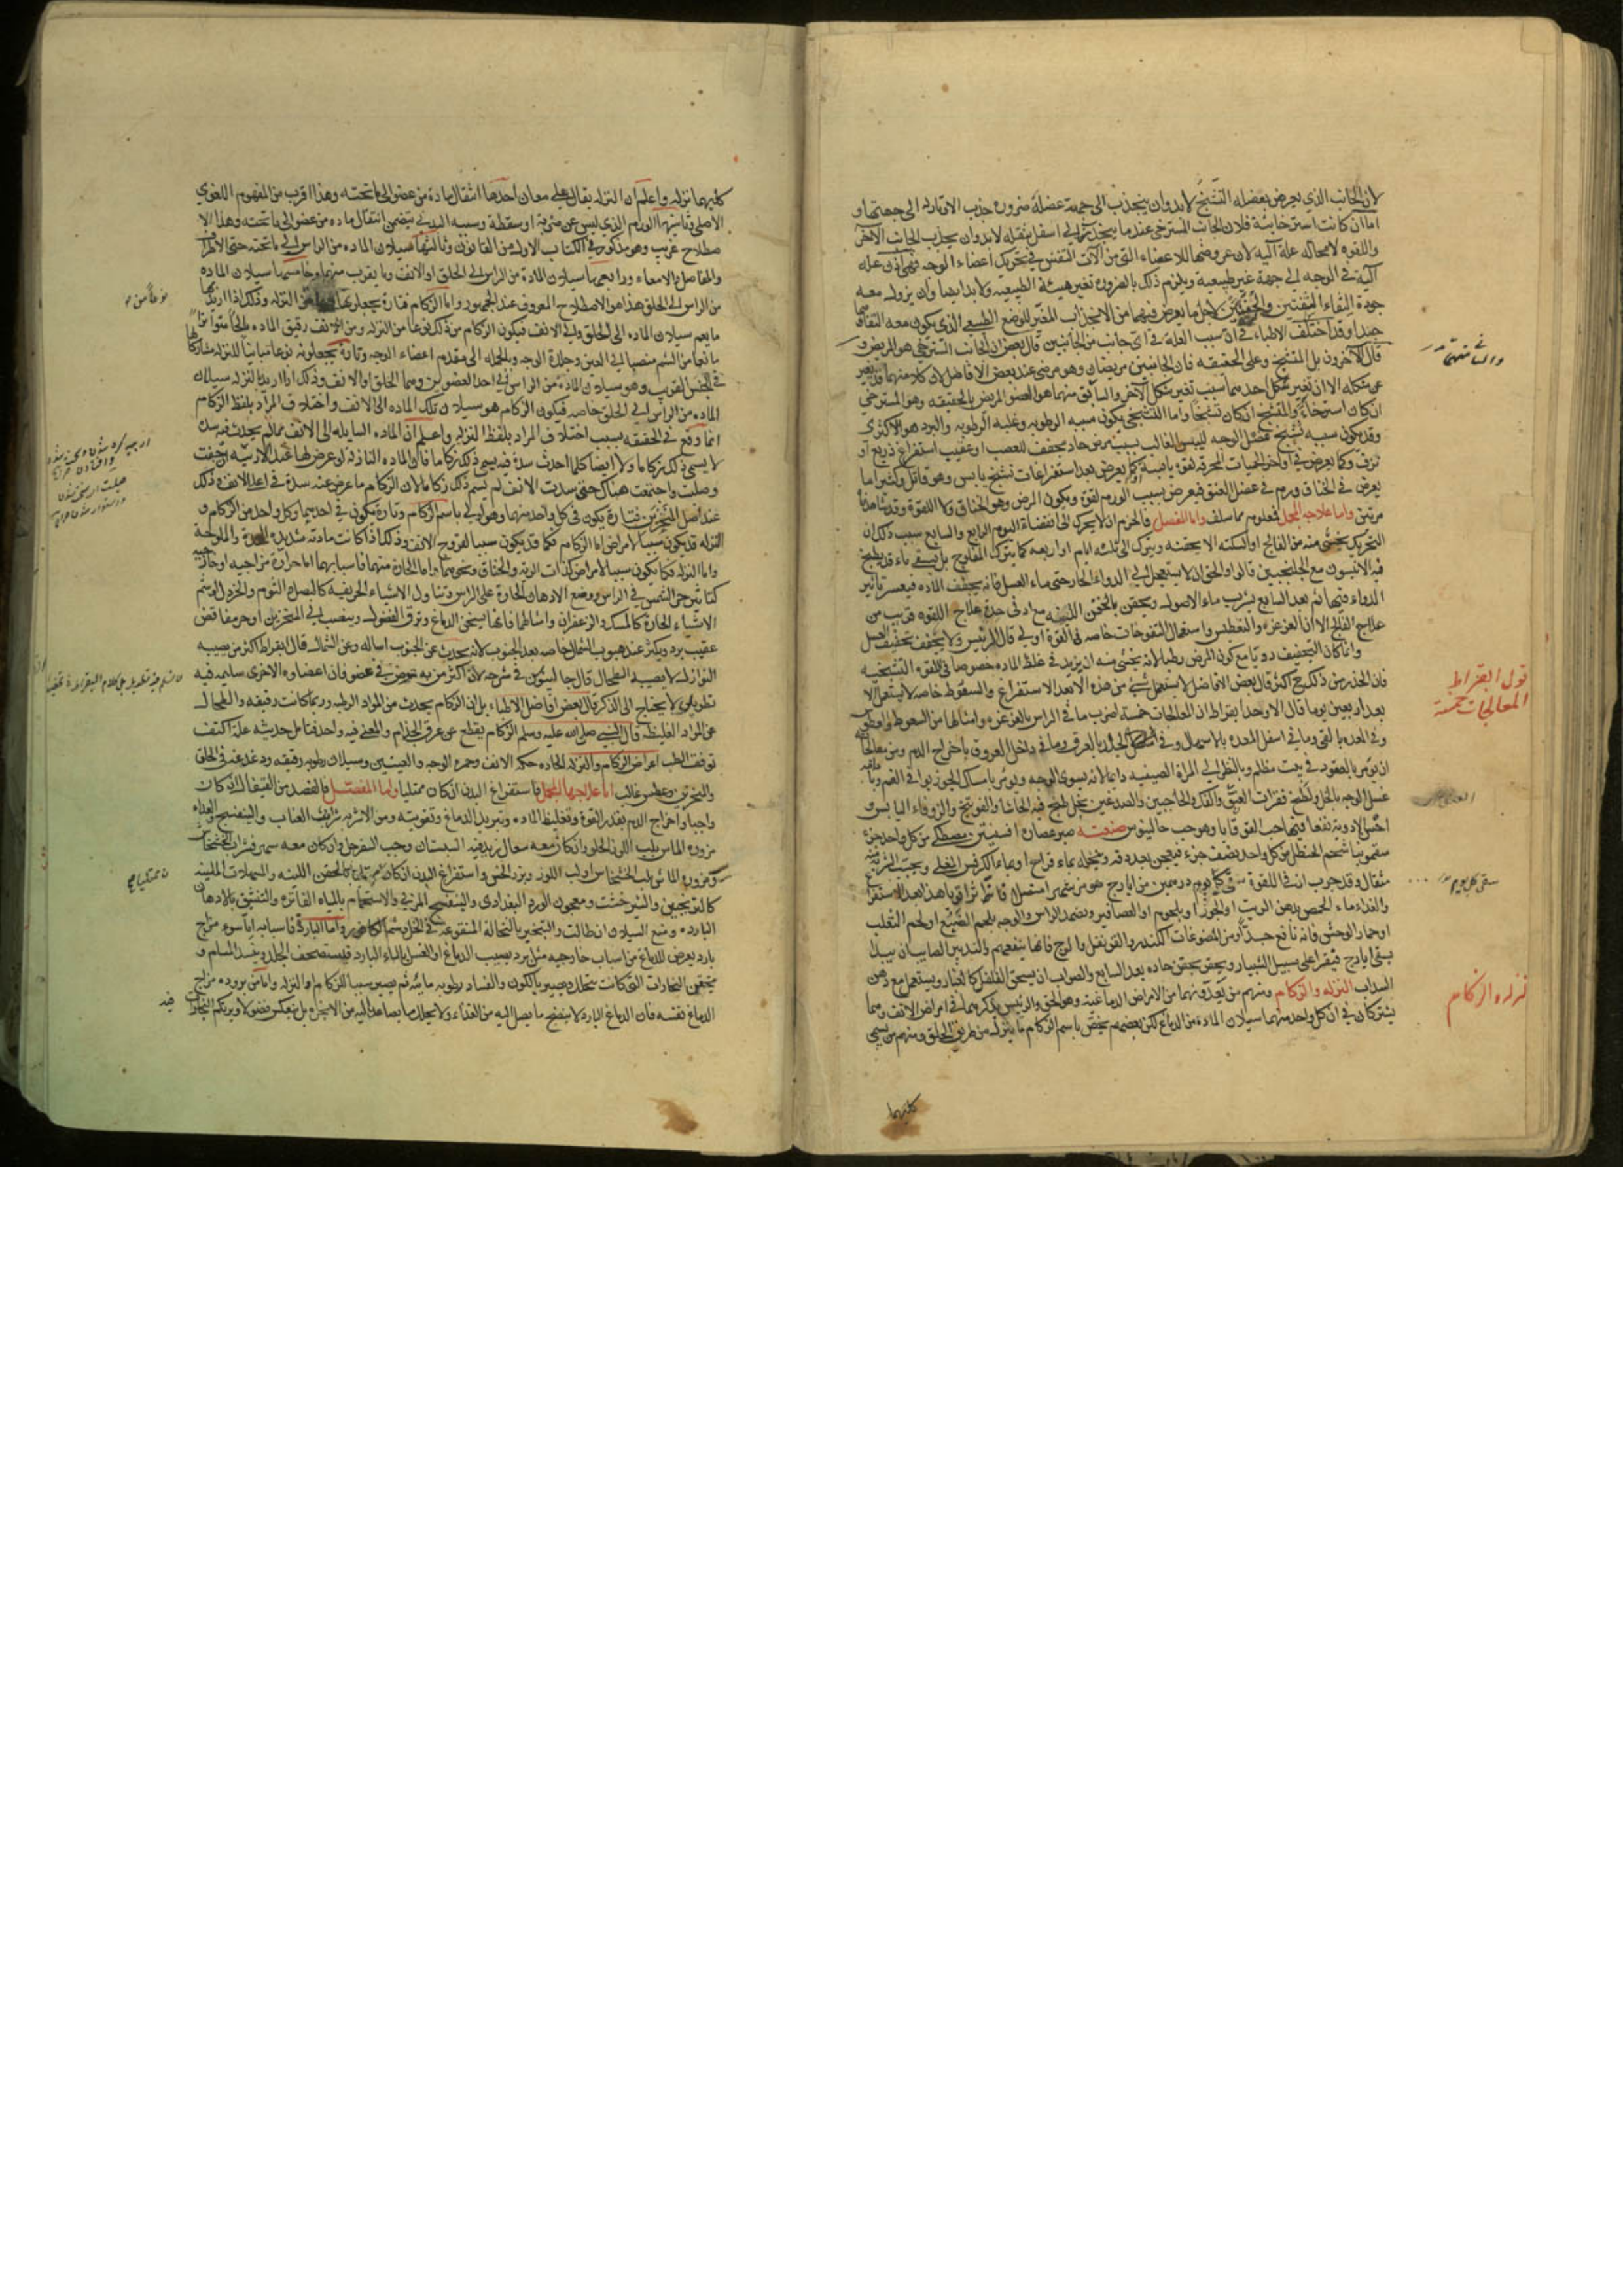 لان الجانب الذي يعرض بعضله التشنج لابد وان ينجذب الى جهة عضله ضرورة جذب الاوتار الى جهتها و
اما ان كانت استرخائية فلان الجانب المسترخي عند ما ينحدر الى اسفل بثقله لابد وان يجذب الجانب الآخر
واللقوه لا محاله علة آلية لان عروضها للاعضاء التي من الآت النفس في تحريك اعضاء الوجه فهي اذن علة
آلية في الوجه الى جهة غير طبيعية ويلزم ذلك بالضرورة تغير هيئته الطبيعيه ولابد ايضا وان يزول معه
جودة التقاء الشفتين والجفنين لاجل ما يعرض فيهما من الانجذاب المغير للوضع الطبيعي الذي يكون معه التقاؤهما
جيدا وقد اختلف الاطباء في ان سبب العلة في اي جانب من الجانبين قال بعض ان الجانب المسترخي هو المريض و
قال الآخرون بل المتشنج وعلى الحقيقه فان الجانبين مريضان وهو مرضي عند بعض الافاضل لان كلا منهما قد تغير
عن شكله الا ان تغير شكل احدهما سبب تغير شكل الآخر والسابق منهما هو العضو المريض بالحقيقه وهو المسترخي
ان كان استرخاء والمتشنج ان كان تشنجا واما التشنجي يكون سببه الرطوبه وغلبة الرطوبه والبرد هو الاكثري
وقد يكون سببه تشنج عضل الوجه لليبس الغالب بسبب مرض حاد يجفف للعصب او عقيب استفراغ ذريع او
نزف وكما يعرض في اواخر الحميات المحرقه لقوة يابسة كما يعرض بعد استفراغات تشنج يابس وهو قاتل وكثيرا ما
يعرض في الخناق ورم في عضل العنق فيعرض بسبب الورم لقوة ويكون المرض وهو الخناق ولا اللقوة وقد شاهدنا
مرتين واما علاجه المجمل فمعلوم مما سلف واما المفصل فالحزم ان لا يحرك الى انقضاء اليوم الرابع والسابع سبب ذلك ان
التحريك يخشى منه من الفالج او السكته الا بحقنه ويترك الى ثلثه ايام او اربعه كما يترك المفلوج بل يسقى ماء قد يطبخ
فيه الانيسون مع الجلنجبين قالوا والحق ان لا يستعجل الى الدواء الحار حتى ماء العسل فانه يجفف الماده فيعسر تاثير
الدواء فيها ثم بعد السابع يشرب ماء الاصول ويحقن بالحقن اللينه مع ادنى حدة علاج اللقوه قريب من
علاج الفالج الا ان الغرغره والتعطيس واستعمال النفوخات خاصه في اللقوة اولى قال الرئيس ولا يجفف تجفيف العسل
وانما كان التجفيف رديا مع كون المرض رطبا لانه يخشى منه ان يزيد في غلظ الماده خصوصا في اللقوه التشنجيه
فان الحذر من ذلك فيها اكثر قال بعض الافاضل لا يستعمل شئ من هذه الا بعد الاستفراغ والسعوط خاصه لا يستعمل الا
بعد اربعين يوما قال الاوحد بقراط ان المعالجات خمسة اضرب ما في الراس بالغرغره وامثالها من السعوط والعطوس
وفي المعده بالقئ وما في اسفل المعده بالاسهال وفي الجلد بالعرق وما في داخل العروق باخراج الدم ومن معالجاته
ان يؤمر بالقعود في بيت مظلم وبالنظر الى المرآة الصينيه دايما لانه يسوي الوجه ويؤمر بامساك الجوزبوا في الفم وبمداومة
غسل الوجه بالخل ولطخ فقرات العنق والفك والحاجبين والصدغين بخل طبخ فيه الحاشا والفوتنج والزوفاء اليابس و
احسن الادويه نفعا فيها حب القوقايا وهو حب جالينوس صنعته صبر عصارة افسنتين مصطكي من كل واحد جزء
سقمونيا شحم الحنظل من كل واحد نصف جزء فيعجن بعد دقه ونخله بماء قراح او بماء الكرفس المغلي ويحبب الشربة منه
مثقال وقد جرب ان في اللقوة سقي كل يوم درهمين من ايارج هرمس شهر استعمل
والغذاء ماء الحمص بدهن الزيت او الجوز او بلحوم العصافير ويضمد الراس والوجه بلحم الضبع او لحم الثعلب
او حمار الوحش فانه نافع جدا ومن المضوغات الكندر والقرنفل والوج فانها ينفعهم والتدبير الصائب ان يبدل
بسقي ايارج فيقرا على سبيل الشبيار ويحقن بحقن حاده بعد السابع والصواب ان يسحق الفلفل كالغبار ويستعمل مع دهن
السداب النزله والزكام ومنهم من يعدونهما من الامراض الدماغيه وهو الحق والرئيس يذكرهما في امراض الانف وهما
يشتركان في ان كل واحد منهما سيلان الماده من الدماغ لكن بعضهم يخص باسم الزكام ما ينزل من طريق الحلق ومنهم من يسمى
كليهما
قول ابقراط
المعالجات خمسة
سقي كل يوم
نزله والزكام
كليهما نزله واعلم ان النزله يقال على معان احدها انتقال ماده من عضو الى ما تحته وهذا اقرب من المفهوم اللغوي
الاصلي وثانيها الورم الذي ليس عن ضربة او سقطة وسببه البدني يتضمن انتقال ماده من عضو الى ما تحته وهذا الا
صطلاح غريب وهو مذكور في الكتاب الاول من القانون وثالثها سيلان الماده من الراس الى ما تحته حتى الاطراف
والمفاصل والامعاء ورابعها سيلان المادة من الراس الى الحلق او الانف وما يقرب منهما وخامسها سيلان الماده
من الراس الى الحلق هذا هو الاصطلاح المعروف عند الجمهور واما الزكام فتارة يجعلونه نوعا من النزله وذلك اذا اريد بها
ما يعم سيلان الماده الى الحلق والى الانف فيكون الزكام من ذلك نوعا من النزله ومن الانف رقيق الماده ملحا متواترا
مانعا من الشم منصبا الى العين وجلدة الوجه وبالجمله الى مقدم اعضاء الوجه وتارة يجعلونه نوعا مباينا للنزله مشاركا لها
في الجنس القريب وهو سيلان المادة من الراس الى احد العضوين وهما الحلق او الانف وذلك اذا اريد بالنزله سيلان
الماده من الراس الى الحلق خاصه فيكون الزكام هو سيلان تلك الماده الى الانف واختلاف المراد بلفظ الزكام
انما وقع في الحقيقه بسبب اختلاف المراد بلفظ النزله واعلم ان الماده السايله الى الانف مما لم يحدث فيه سدة
لا يسمى ذلك زكاما ولا ايضا كلما احدث سدة فيه يسمى ذلك زكاما فان الماده النازلة لو عرض لها عند الارنبه ان جفت
وصلت واجتمعت هناك حتى سدت الانف لم يسم ذلك زكاما لان الزكام ما عرض عنه سدة في اعلى الانف وذلك
عند اصل المنخرين فتارة يكون في كل واحد منهما وهو اولى باسم الزكام وتارة يكون في احدهما وكل واحد من الزكام و
النزله قد يكون سببا لامراض اما الزكام فكما قد يكون سببا لقروح الانف وذلك اذا كانت مادته شديدة الحدة والملوحة
واما النزله فكما يكون سببا لامراض كذات الريه والخناق ونحوهما واما الحار منهما فاسبابهما اما حرارة مزاجيه او خارجيه
كتاثير حر الشمس في الراس ووضع الادهان الحارة على الراس وتناول الاشياء الحريفه كالبصل والثوم والخردل او شم
الاشياء الحارة كالمسك والزعفران وامثالها فانها يسخن الدماغ وترق الفضول وينصب الى المنخرين او حر مفاقص
عقيب برد ويكثر عند هبوب الشمال خاصه بعد الجنوب لانه يحدث عن الجنوب اساله وعن الشمال قال بقراط اكثر من يصيبه
النوازل لا يصيبه الطحال قال جالينوس في شرحه لان اكثر من به مرض في عضو فان اعضاوه الاخرى سليمه فيه
نظر بل لا يحتاج الى الذكر قال بعض افاضل الاطباء بل ان الزكام يحدث من المواد الرطبه وربما كانت رقيقه والطحال
عن المواد الغليظه قال النبي صلى الله عليه وسلم الزكام يقطع عن عرق الجذام والمعنى فيه واحد فتامل حديثه علة اكتف
توقف الطب اعراض الزكام والنزله الحاده حكه الانف وحمره الوجه والعينين وسيلان رطوبه رقيقه ودغدغه في الحلق
والنخرتين وعطس غالب اما علاجها المجمل فاستفراغ البدن ان كان ممتليا واما المفصل فالفصد من القيفال ان كان
واجبا واخراج الدم بقدر القوة وتغليظ الماده وتبريد الدماغ وتقويته ومن الاشربه شراب العناب والبنفسج والغذاء
مزورة الماش بلب اللوز الحلو وان كان معه سعال زيد فيه السبستان وحب السفرجل وان كان معه سهر فشراب الخشخاش
ومزورة الماش بلب الخشخاش ولب اللوز وبزر الخس واستفراغ البدن ان كان ثم امتلاء كالحقن اللينه والمسهلات الملينه
كالترنجبين والشيرخشت ومعجون الورد البغدادي والبنفسج المربي والاستحمام بالمياه الفاترة والتنشق بالادهان
البارده ومنع السيلان ان طالت والتبخير بالنخالة المنقوعة في الخل وشم الكافور واما البارد فاسبابه اما سوء مزاج
بارد يعرض للدماغ من اسباب خارجيه مثل برد يصيب الدماغ او الغسل بالماء البارد فيستحصف الجلد ويشد المسام و
يحتقن البخارات التي كانت يتحلل ويصير بالكون والفساد رطوبه مائيه ثم يصير سببا للزكام والنزله واما من بروده مزاج
الدماغ نفسه فان الدماغ البارد لا ينضج ما يصل اليه من الغذاء ولا يحلل ما يصاعد اليه من الابخره بل ينعكس فضولا ويرتكم البخارات
فيه